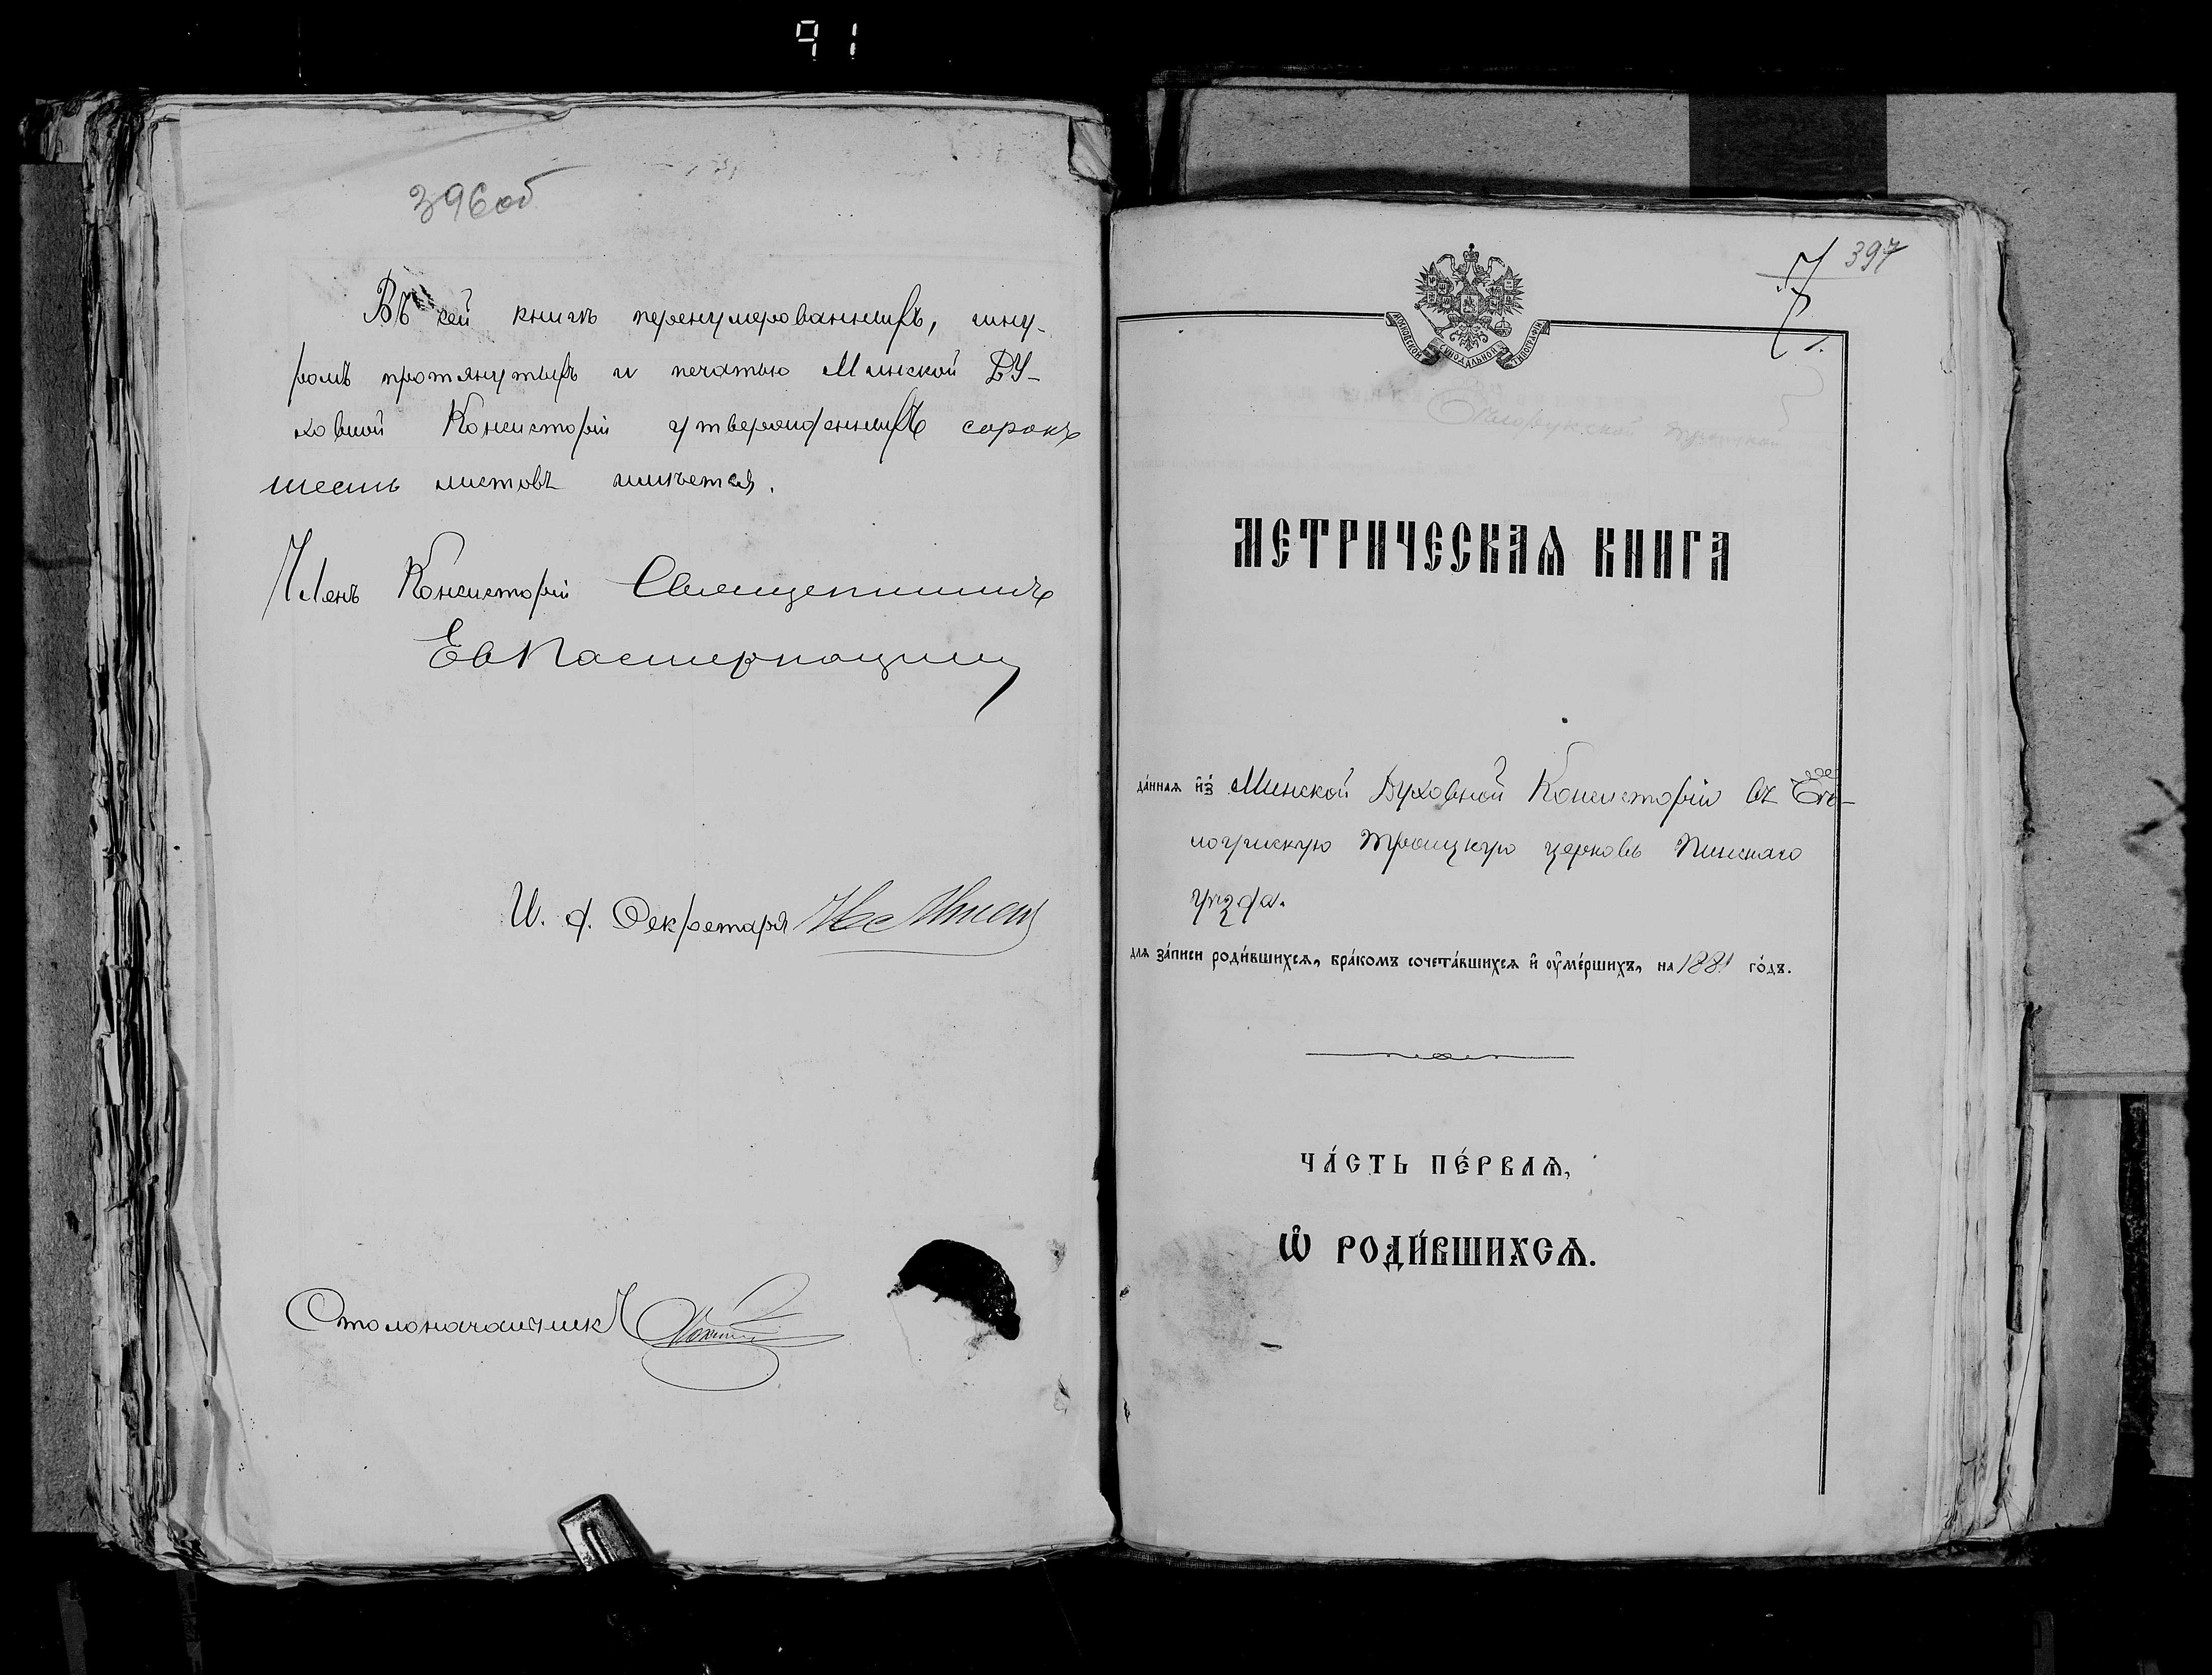 91
396об
Въ сей книгѣ перенумерованныхъ, шну-
ромъ протянутыхъ и печатью Минской Ду-
ховной Консисторіи утвержденныхъ сорокъ
шесть листовъ имѣется.
Членъ Консисторіи Священникъ
И. д. Секретаря
Столоначальникъ
397
7
МОСКОВСКОЙ СѴНОДАЛЬНОЙ ТИПОГРАФІИ
МЕТРИЧЕСКАѦ КНИГА
да́ннаѧ и҆з̾ Минской Духовной Консисторіи въ
Троицкую церковь Пинскаго
уѣзда.
длѧ за́писи роди́вшихсѧ, бра́комъ сочета́вшихсѧ и҆ ᲂу҆ме́ршихъ, на 1881 го́дъ.
ЧА́СТЬ ПЕ́РВАѦ,
Ѽ РОДИ́ВШИХСѦ.